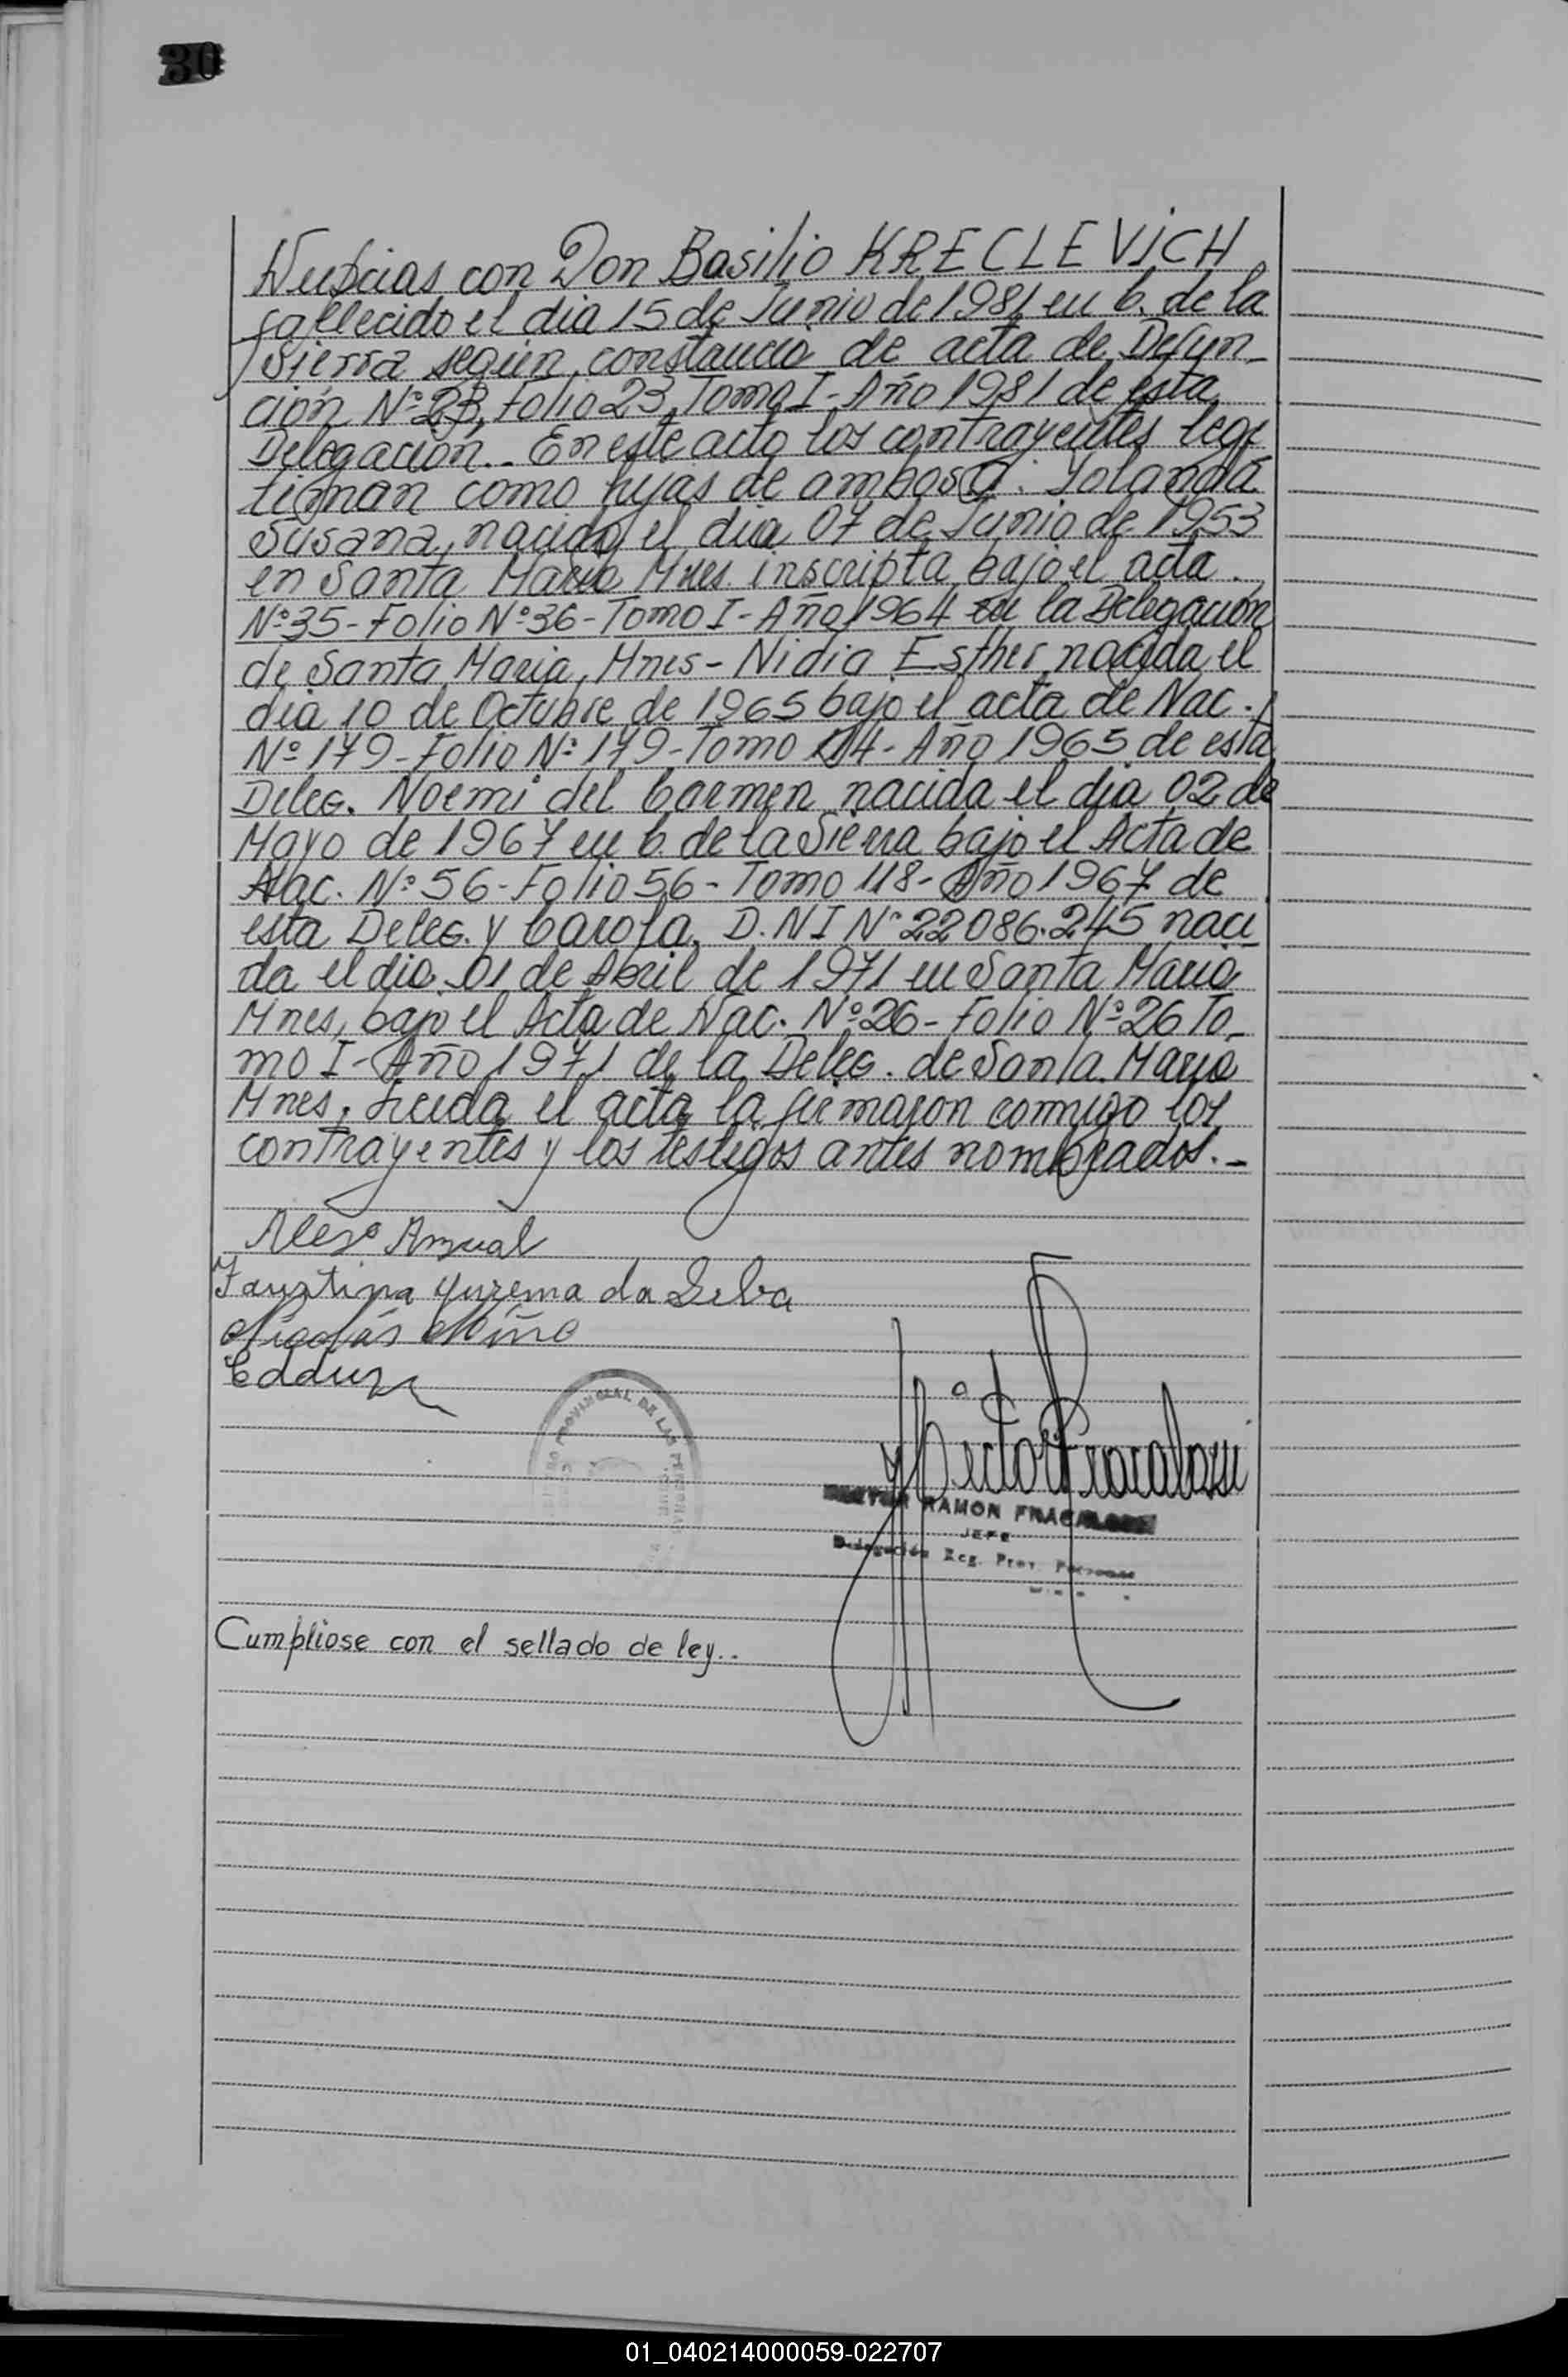 30
Nupcias con Don Basilio KRECLEVICH
fallecido el dia 15 de Junio de 1981 en C. de la
Sierra según constancia de acta de Defun-
ción Nº 23, Folio 23, Tomo I - Año 1981 de esta
Delegación.- En este acto los contrayentes legi
timan como hijas de ambos a: Yolanda
Susana, nacida el dia 07 de Junio de 1953
en Santa Maria Mnes. inscripta bajo el acta
Nº 35 - Folio Nº 36 - Tomo I - Año 1964 en la Delegación
de Santa Maria, Mnes - Nidia Esther nacida el
dia 10 de Octubre de 1965 bajo el acta de Nac.
Nº 179 - Folio Nº 179 - Tomo 114 - Año 1965 de esta
Deleg. Noemi del Carmen nacida el dia 02 de
Mayo de 1967 en C. de la Sierra bajo el Acta de
Nac. Nº 56 - Folio 56 - Tomo 118 - Año 1967 de
esta Deleg. y Carola, D.NI Nº 22086.245 naci
da el dia 01 de Abril de 1971 en Santa Maria
Mnes, bajo el Acta de Nac. Nº 26 - Folio Nº 26 To-
mo I - Año 1971 de la Deleg. de Santa Maria
Mnes. Leida el acta la firmaron comigo los
contrayentes y los testigos antes nombrados.-
Faustina Yurema da Silva
Nicolás Miño
Hector Fracalossi
PROVINCIAL DE LAS PERSONAS
RAMON FRACALOSSI
JEFE
Delegación Reg. Prov. Personas
Cumpliose con el sellado de ley..
01_040214000059-022707